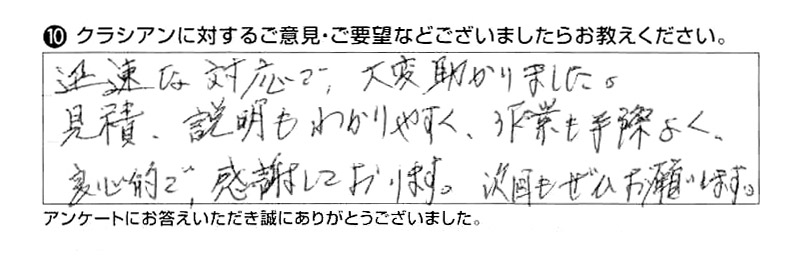 ⑩ クラシアンに対するご意見・ご要望などございましたらお教えください。
迅速な対応で、大変助かりました。
見積、説明もわかりやすく、作業も手際よく、
良心的で、感謝しております。次回もぜひお願いします。
アンケートにお答えいただき誠にありがとうございました。